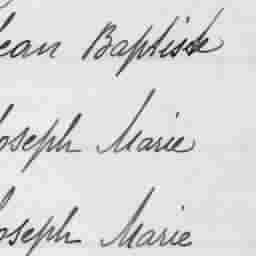 Jean Baptiste
Joseph Marie
Joseph Marie